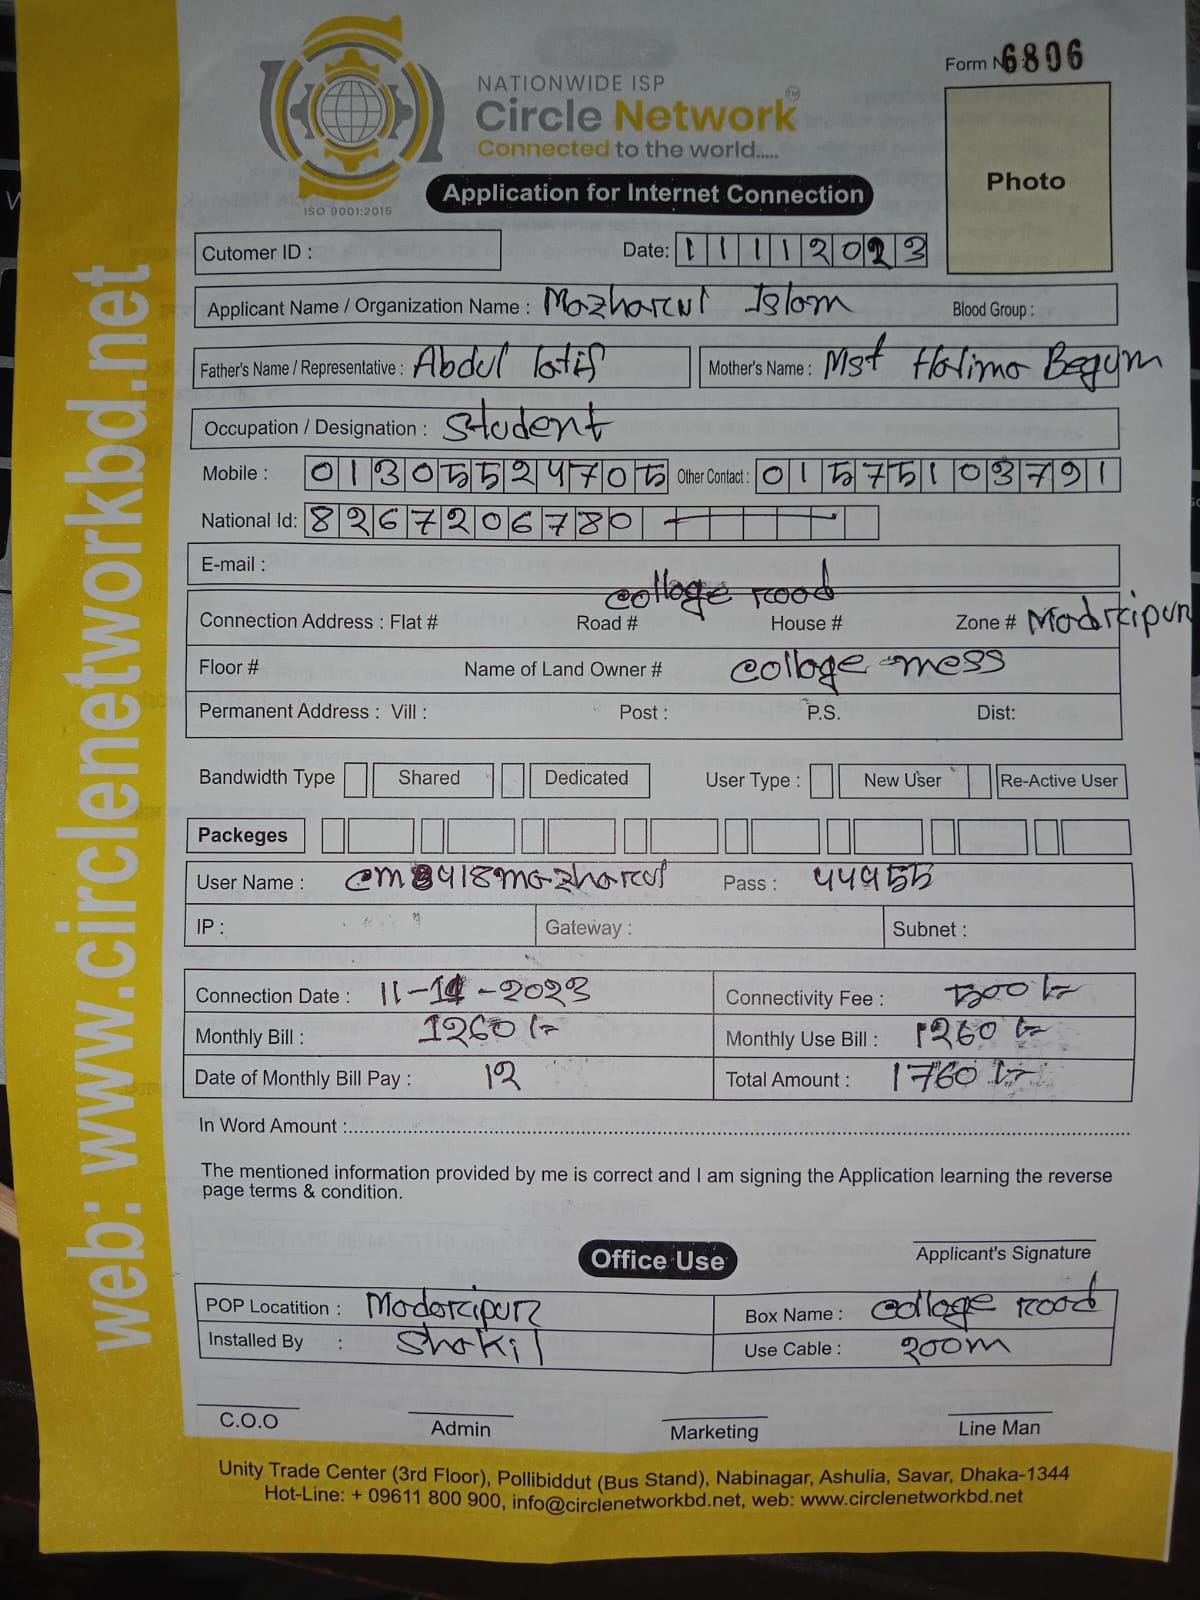 Form No 6806
NATIONWIDE ISP
Circle Network TM
Connected to the world.....
ISO 9001:2015
Application for Internet Connection
Photo
Cutomer ID :
Date: 11112023
Applicant Name / Organization Name : Mazharul Islam Blood Group :
Father's Name / Representative : Abdul latif Mother's Name : Mst Halima Begum
Occupation / Designation : Student
Mobile : 01305524705 Other Contact : 01575103791
National Id: 8267206780
E-mail :
Connection Address : Flat # Road # college road House # Zone # Madripur
Floor # Name of Land Owner # college mess
Permanent Address : Vill : Post : P.S. Dist:
Bandwidth Type Shared Dedicated User Type : New User Re-Active User
Packeges
User Name : cm8418mazharul Pass : 44955
IP : Gateway : Subnet :
Connection Date : 11-11-2023 Connectivity Fee : 500 /-
Monthly Bill : 1260 /- Monthly Use Bill : 1260 /-
Date of Monthly Bill Pay : 12 Total Amount : 1760 /-
In Word Amount :
The mentioned information provided by me is correct and I am signing the Application learning the reverse
page terms & condition.
Applicant's Signature
Office Use
POP Locatition : Madaripur Box Name : college road
Installed By : Shakil Use Cable : 200m
C.O.O Admin Marketing Line Man
Unity Trade Center (3rd Floor), Pollibiddut (Bus Stand), Nabinagar, Ashulia, Savar, Dhaka-1344
Hot-Line: + 09611 800 900, info@circlenetworkbd.net, web: www.circlenetworkbd.net
web: www.circlenetworkbd.net